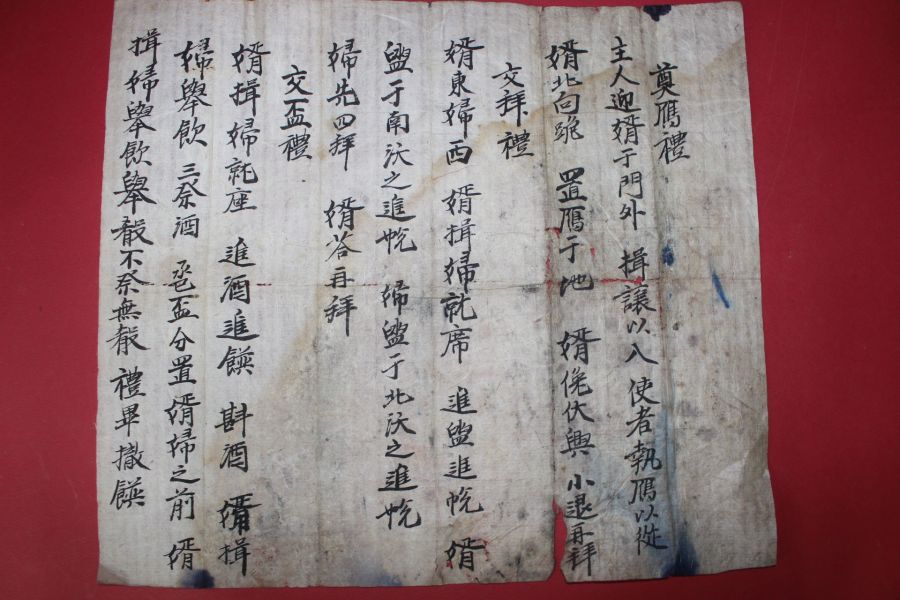 奠鴈禮
主人迎婿于門外 揖讓以入 使者執鴈以從
婿北向跪 置鴈于地 婿俛伏興 小退再拜
交拜禮
婿東婦西 婿揖婦就席 進盥進帨 婿
盥于南沃之進帨 婦盥于北沃之進帨
婦先四拜 婿答再拜
交盃禮
婿揖婦就座 進酒進饌 斟酒 婿揖
婦擧飮 三祭酒 巹盃分置婿婦之前 婿
揖婦擧飮擧殽不祭無殽 禮畢撤饌